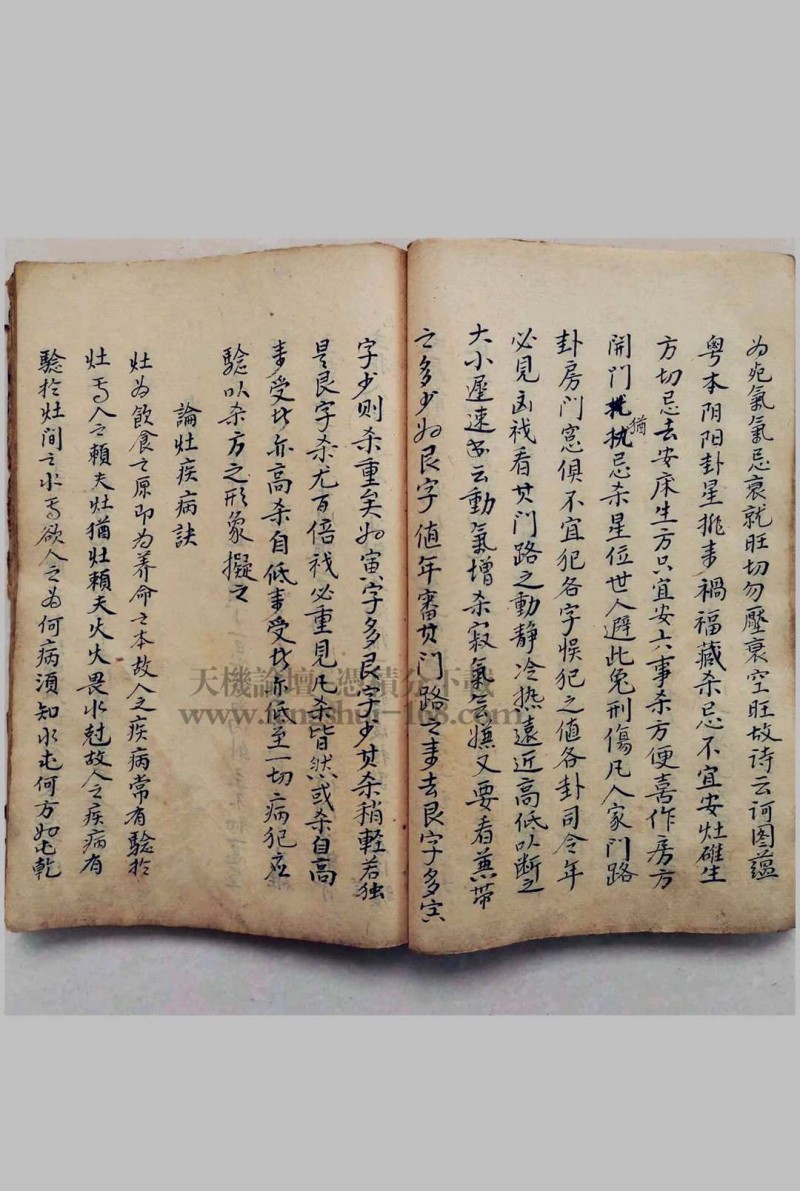 为死氣氣忌衰就旺切勿壓衰空旺故诗云河图蕴
粤本阴阳卦星推来禍福藏杀忌不宜安灶碓生
方切忌去安床生方只宜安六事杀方便喜作房方
開门犹忌杀星位世人避此免刑傷凡人家门路
猶
卦房门窓俱不宜犯各字悮犯之值各卦司令年
必見凶祸看其门路之動静冷热遠近高低以断之
大小歷速 云動氣增杀寂氣 又要看兼带
之多少如艮字值年審其门路之来去艮字多寅
字少则杀重矣如寅字多艮字少其杀稍輕若独
是艮字杀尤百倍祸必重見凡杀皆然或杀自高
来受此亦高杀自低来受此亦低至一切病犯应
驗以杀方之形象擬之
論灶疾病訣
灶为飲食之原即为养命之本故人之疾病常有驗於
灶焉人之賴夫灶猶灶賴夫火火畏水尅故人之疾病有
驗於灶间之水焉欲人之为何病湏知水走何方如屯乾
天機論壇 憑積分下載
www.fengshui-168.com